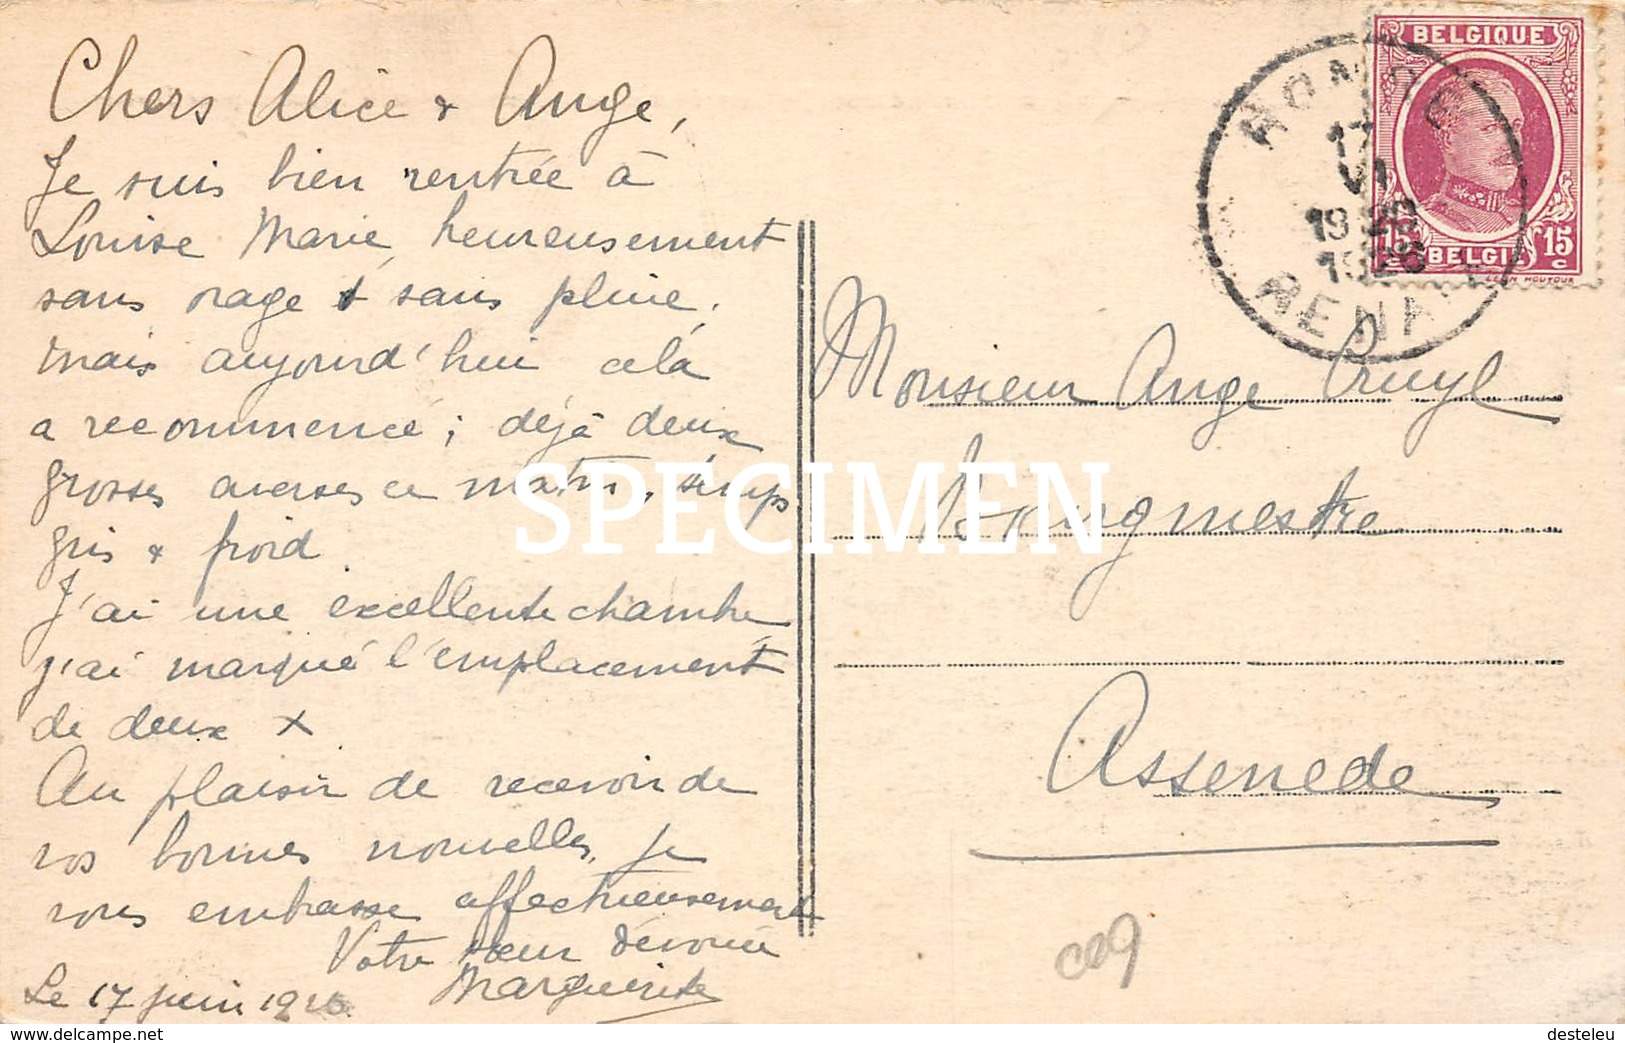 Chers Alice & Ange,
Je suis bien rentrée à
Louise Marie, heureusement
sans orage & sans pluie,
mais aujourd'hui cela
a recommencé; déjà deux
grosses averses ce matin, temps
gris & froid
J'ai une excellente chambre
j'ai marqué l'emplacement
de deux X
Au plaisir de recevoir de
vos bonnes nouvelles, je
vous embrasse affectueusement
Votre sœur dévouée
Marguerite
Le 17 juin 1926.
BELGIQUE
15 15
BELGIE
17
VI
1926
1926
RENA
Monsieur Ange Cruyl
Bourgmestre
Assenede
SPECIMEN
www.delcampe.net
desteleu